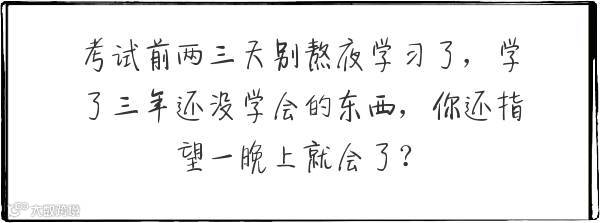 考试前两三天别熬夜学习了，学
了三年还没学会的东西，你还指
望一晚上就会了？